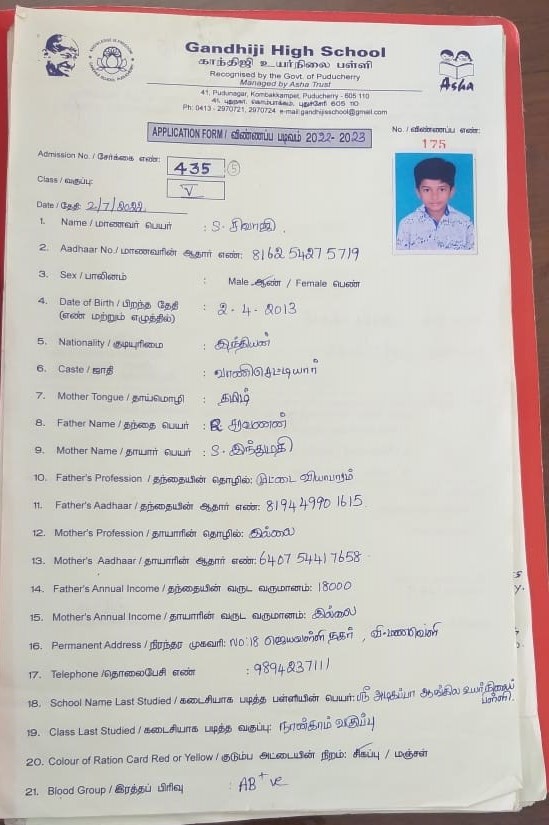 Gandhiji High School
காந்திஜி உயர்நிலை பள்ளி
Recognised by the Govt. of Puducherry
Managed by Asha Trust
41, Pudunagar, Kombakkampet, Puducherry - 605 110
41, புதுநகர், கொம்பாக்கம், புதுச்சேரி 605 110
Ph: 0413 - 2970721, 2970724 e-mail:gandhijisschool@gmail.com
Asha
APPLICATION FORM / விண்ணப்ப படிவம் 2022-2023
No. / விண்ணப்ப எண்:
175
Admission No. / சேர்க்கை எண்: 435 5
Class / வகுப்பு: V
Date / தேதி: 2/7/2022
1. Name / மாணவர் பெயர் : S. சிவாஜி
2. Aadhaar No./ மாணவரின் ஆதார் எண்: 8162 5427 5719
3. Sex / பாலினம் : Male ஆண் / Female பெண்
4. Date of Birth / பிறந்த தேதி : 2 - 4 - 2013
(எண் மற்றும் எழுத்தில்)
5. Nationality / குடியுரிமை : இந்தியன்
6. Caste / ஜாதி : வாணிசெட்டியார்
7. Mother Tongue / தாய்மொழி : தமிழ்
8. Father Name / தந்தை பெயர் : R சரவணன்
9. Mother Name / தாயார் பெயர் : S. இந்துமதி
10. Father's Profession / தந்தையின் தொழில்: முட்டை வியாபாரம்
11. Father's Aadhaar / தந்தையின் ஆதார் எண்: 8194 4990 1615
12. Mother's Profession / தாயாரின் தொழில்: இல்லை
13. Mother's Aadhaar / தாயாரின் ஆதார் எண்: 6407 5441 7658
14. Father's Annual Income / தந்தையின் வருட வருமானம்: 18000
15. Mother's Annual Income / தாயாரின் வருட வருமானம்: இல்லை
16. Permanent Address / நிரந்தர முகவரி: No: 18 ஜெயவள்ளி நகர் , வி-மணவெளி
17. Telephone /தொலைபேசி எண் : 9894237111
18. School Name Last Studied / கடைசியாக படித்த பள்ளியின் பெயர்: ஸ்ரீ ஆங்கில உயர்நிலைப்
பள்ளி
19. Class Last Studied / கடைசியாக படித்த வகுப்பு: நான்காம் வகுப்பு
20. Colour of Ration Card Red or Yellow / குடும்ப அட்டையின் நிறம்: சிகப்பு / மஞ்சள்
21. Blood Group / இரத்தப் பிரிவு : AB+ ve